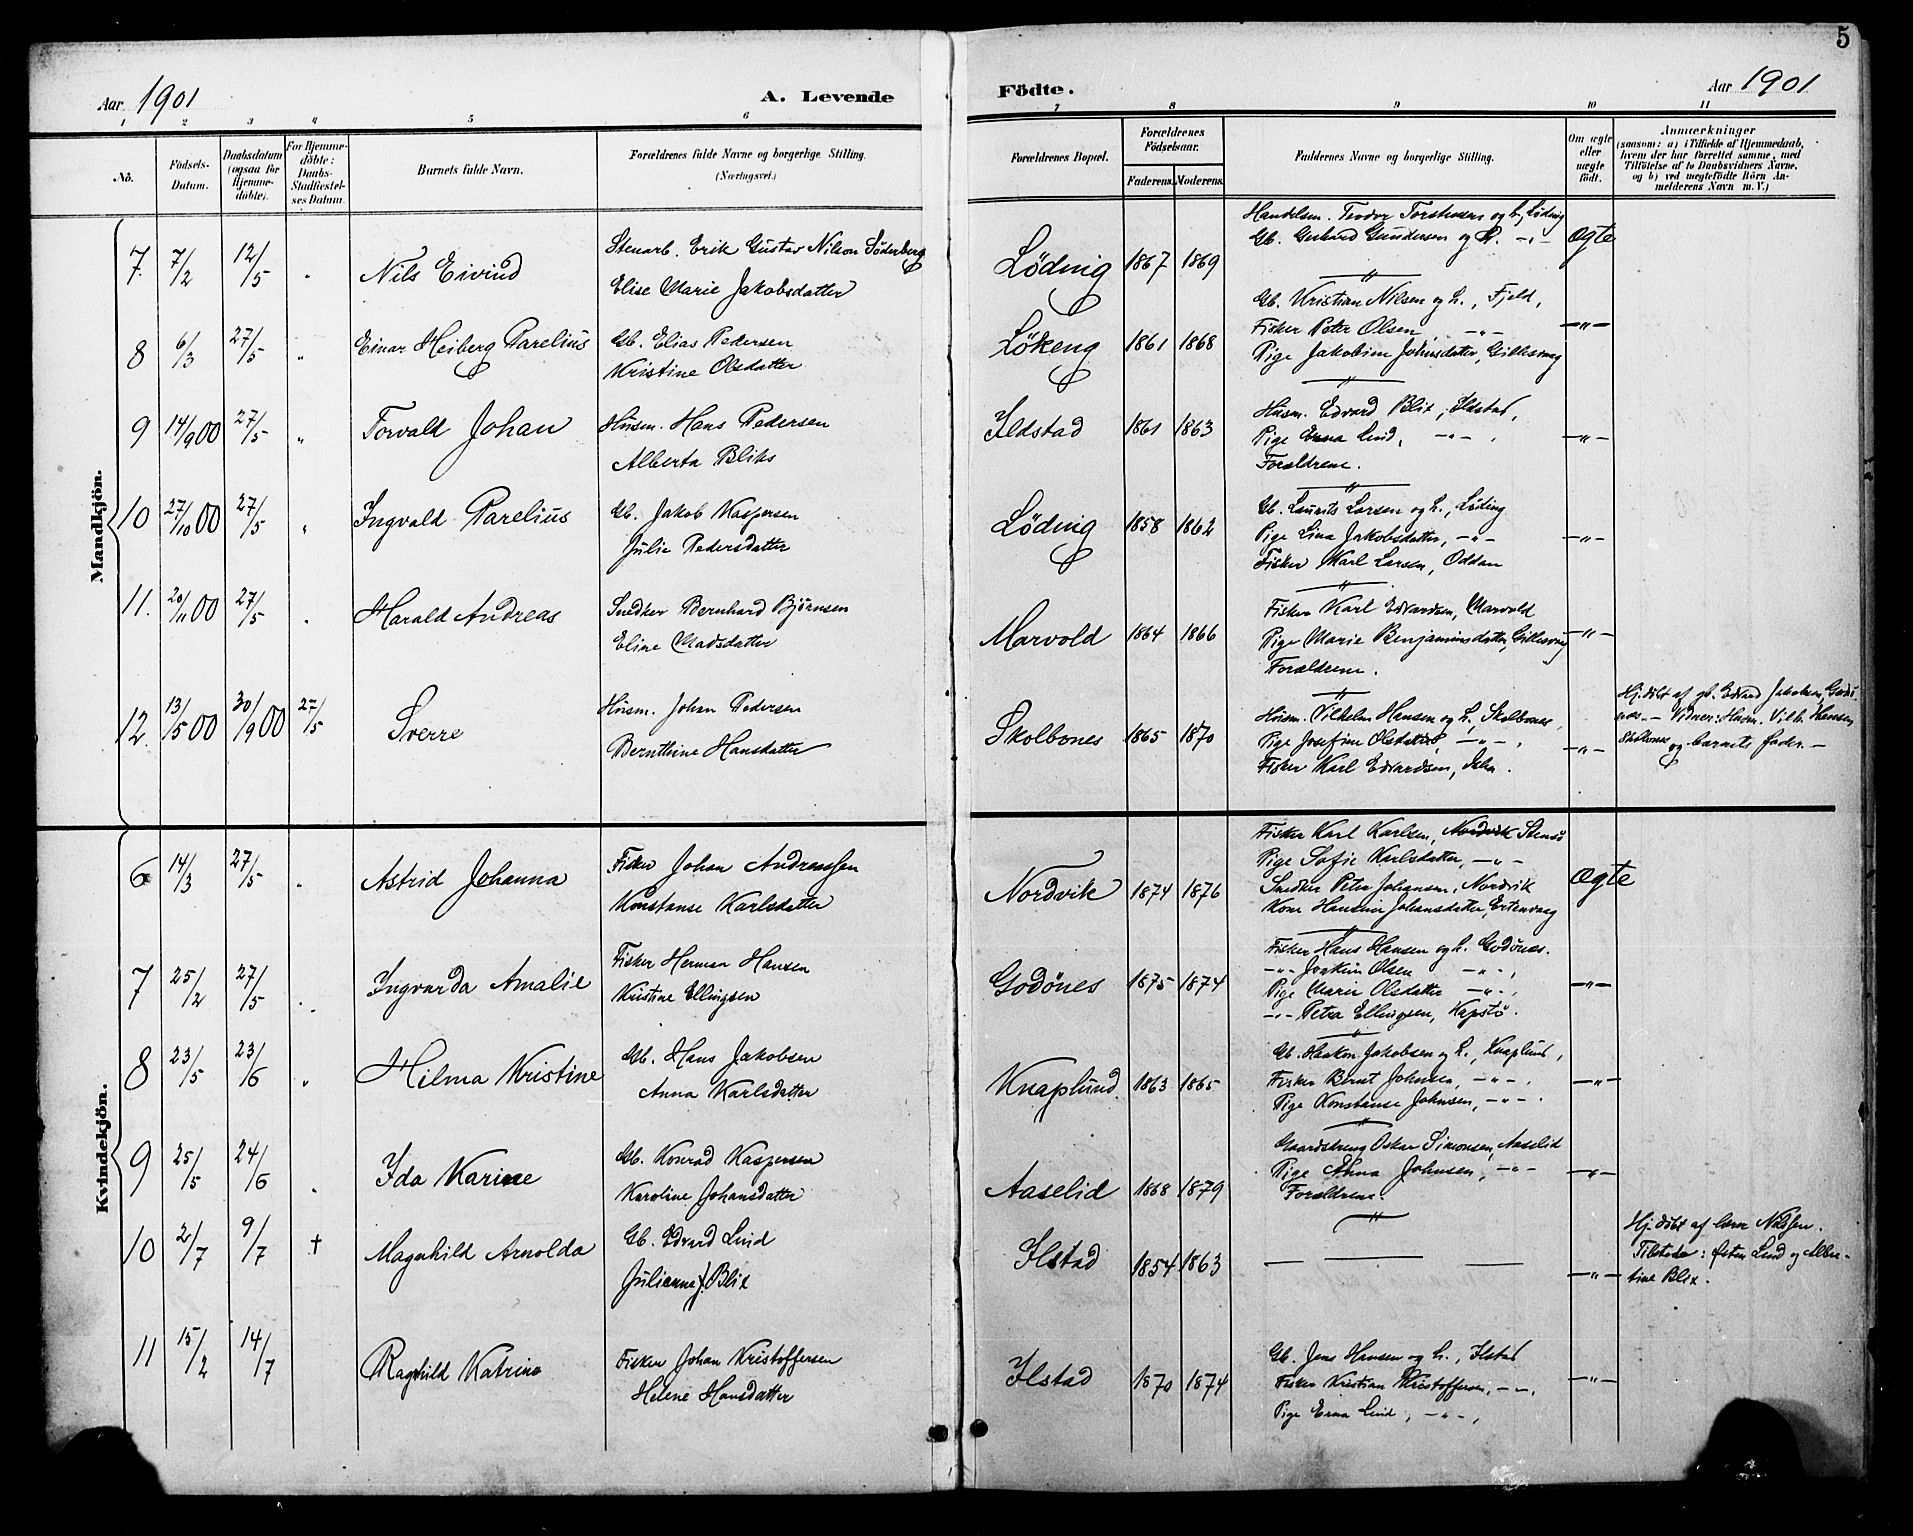 5
Aar 1901
A. Levende
Födte.
Aar 1901
1 2 3 4 5 6 7 8 9 10 11
No.
Födsels-
Datum.
Daabsdatum
(ogsaa for
Hjemme-
döbte).
For Hjemme-
döbte:
Daabs-
Stadfæstel-
ses Datum.
Barnets fulde Navn.
Forældrenes fulde Navne og borgerlige Stilling.
(Næringsvei.)
Forældrenes Bopæl.
Forældrenes
Födselsaar.
Faderens. Moderens.
Faddernes Navne og borgerlige Stilling.
Om ægte
eller
uægte
födt.
Anmærkninger
(saasom: a) i Tilfælde af Hjemmedaab,
hvem der har forrettet samme, med
Tilföielse af to Daabsvidners Navne.
og b) ved uægtefödte Börn An-
melderens Navn m. V.)
Mandkjön.
7. 7/2 12/5 " Nils Eivind
Stenarb. Erik Gustav Nilson Söderberg
Elise Marie Jakobsdatter
Löding 1867 1869
Handelsm. Teodor Torstensen og h., Löding
Gb. Gerhard Gundersen og h. -"-
ægte
8 6/3 27/5 " Einar Heiberg Parelius
Gb. Elias Pedersen
Kristine Olsdatter
Lökeng 1861 1868
Gb. Kristian Nilsen og h., Fjeld,
Fisker Peter Olsen, -"-
Pige Jakobine Johnsdatter, Gillesvag
-"-
9 14/9 00 27/5 " Torvald Johan
Husm. Hans Pedersen
Alberta Bliks
Ildstad 1861 1863
Husm. Edvard Blix, Ildstad,
Pige Erna Lind, -"-,
Forældrene.
-"-
10 27/10 00 27/5 " Ingvald Parelius
Gb. Jakob Kaspersen
Julie Pedersdatter
Löding 1858 1862
Gb. Laurits Larsen og h., Löding
Pige Lina Jakobsdatter, -"-
Fisker Karl Larsen, Oddan
-"-
11. 20/11 00 27/5 " Harald Andreas
Snedker Bernhard Björnsen
Eline Madsdatter
Marvold 1864 1866
Fisker Karl Edvardsen, Marvold
Pige Marie Benjaminsdatter, Gillesvag
Forældrene.
-"-
12. 13/5 00 30/9 00 27/5 Sverre
Husm. Johan Pedersen
Bernthine Hansdatter
Skolbones 1865 1870
Husm. Vilhelm Hansen og h., Skolbones,
Pige Josefine Olsdatter, -"-,
Fisker Karl Edvardsen,
-"-
Hj. döbt af gb. Edvard Jakobsen, Godö-
næs. - Vidner: Husm. Vilh. Hansen
Skolbones og barnets fader. -
Kvindekjön.
6 14/3 27/5 " Astrid Johanna
Fisker Johan Andreassen
Konstanse Karlsdatter
Nordvik 1874 1876
Fisker Karl Karlsen, Nordvik Stensö
Pige Sofie Karlsdatter, -"-
Snedker Peter Johansen, Nordvik
Kone Hansine Johansdatter, Ertenvaag
ægte
7 25/2 27/5 " Ingvarda Amalie
Fisker Herman Hansen
Kristine Ellingsen
Godönes 1875 1874
Fisker Hans Hansen og h. Godönæs.
-"- Joakim Olsen -"-,
Pige Marie Olsdatter -"-,
-"- Petra Ellingsen, Kapstö.
-"-
8 23/5 23/6 " Hilma Kristine
Gb. Hans Jakobsen
Anna Karlsdatter
Knaplund 1863 1865
Gb. Haakon Jakobsen og h., Knaplund,
Fisker Bernt Johnsen, -"-,
Pige Konstanse Johnsen, -"-.
-"-
9 25/5 24/6 " Ida Karine
Gb. Konrad Kaspersen
Karoline Johansdatter
Aaselid 1868 1879
Gaardsdreng Oskar Simonsen, Aaselid
Pige Anna Johnsen, -"-
Forældrene.
-"-
10 2/7 9/7 † Magnhild Arnolda
Gb. Edvard Lind
Julianne J. Blix
Ilstad 1854 1863
— — —
-"-
Hj. döbt af lærer Nilssen.
Tilstede: Östen Lind og Alber-
tine Blix.
11 15/2 14/7 Ragnhild Katrine
Fisker Johan Kristoffersen
Helene Hansdatter
Ilstad 1870 1874
Gb. Jens Hansen og h., Ilstad
Fisker Kristian Kristoffersen, -"-,
Pige Erna Lind, -"-,
-"-